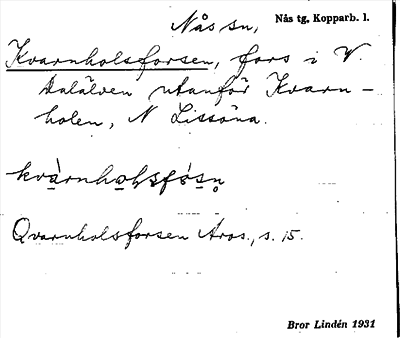 Nås sn, Nås tg, Kopparb. l.
Kvarnholsforsen, fors i V.
Dalälven utanför Kvarn-
holen, N Lissöna.
kvàrnhols̀fósn̥
Qvarnholsforsen Aros., s. 15.
Bror Lindén 1931